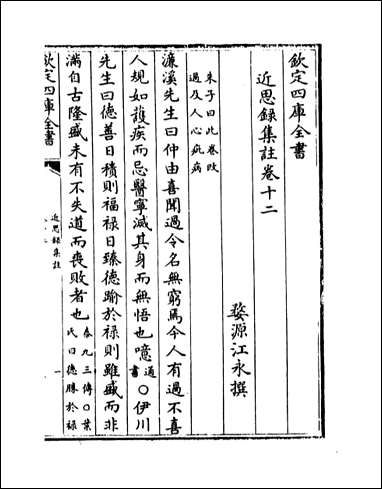 欽定四庫全書
近思錄集註卷十二
婺源江永撰
朱子曰此卷改
過及人心疵病
濂溪先生曰仲由喜聞過令名無窮焉今人有過不喜
人規如護疾而忌醫寧滅其身而無悟也噫通書○伊川
先生曰德善日積則福祿日臻德踰於祿則雖盛而非
滿自古隆盛未有不失道而喪敗者也泰九三傳○葉
氏曰德勝於祿
欽定四庫全書
近思錄集註
一